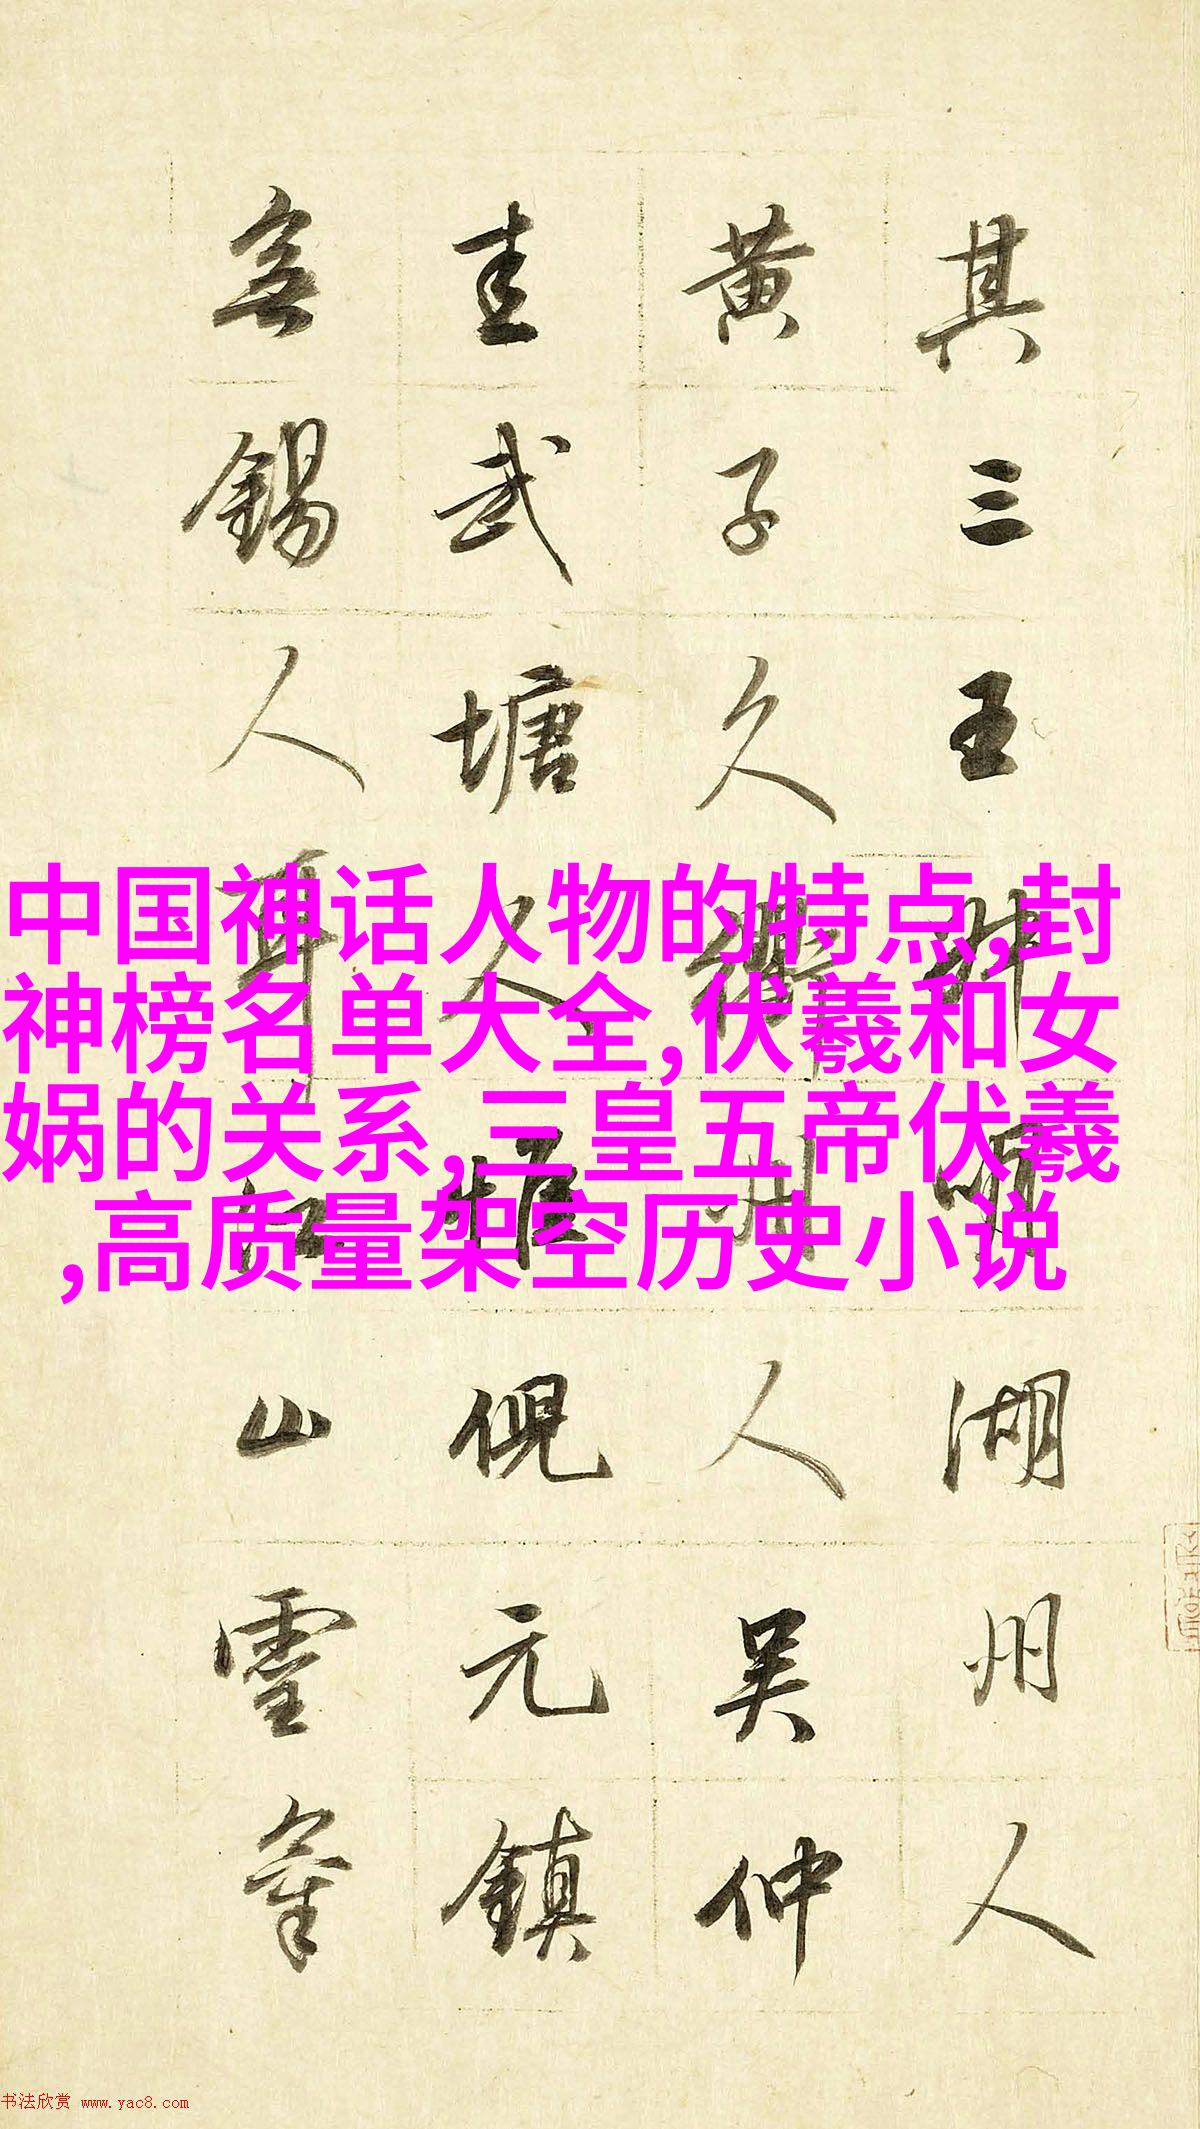 其三王叔明湖州人
黄子久衢州人吴仲
圭武塘人惟倪元鎮
無錫人耳江山靈
中国神话人物的特点,封
神榜名单大全,伏羲和女
娲的关系,三皇五帝伏羲
,高质量架空历史小说
书法欣赏 www.yac8.com